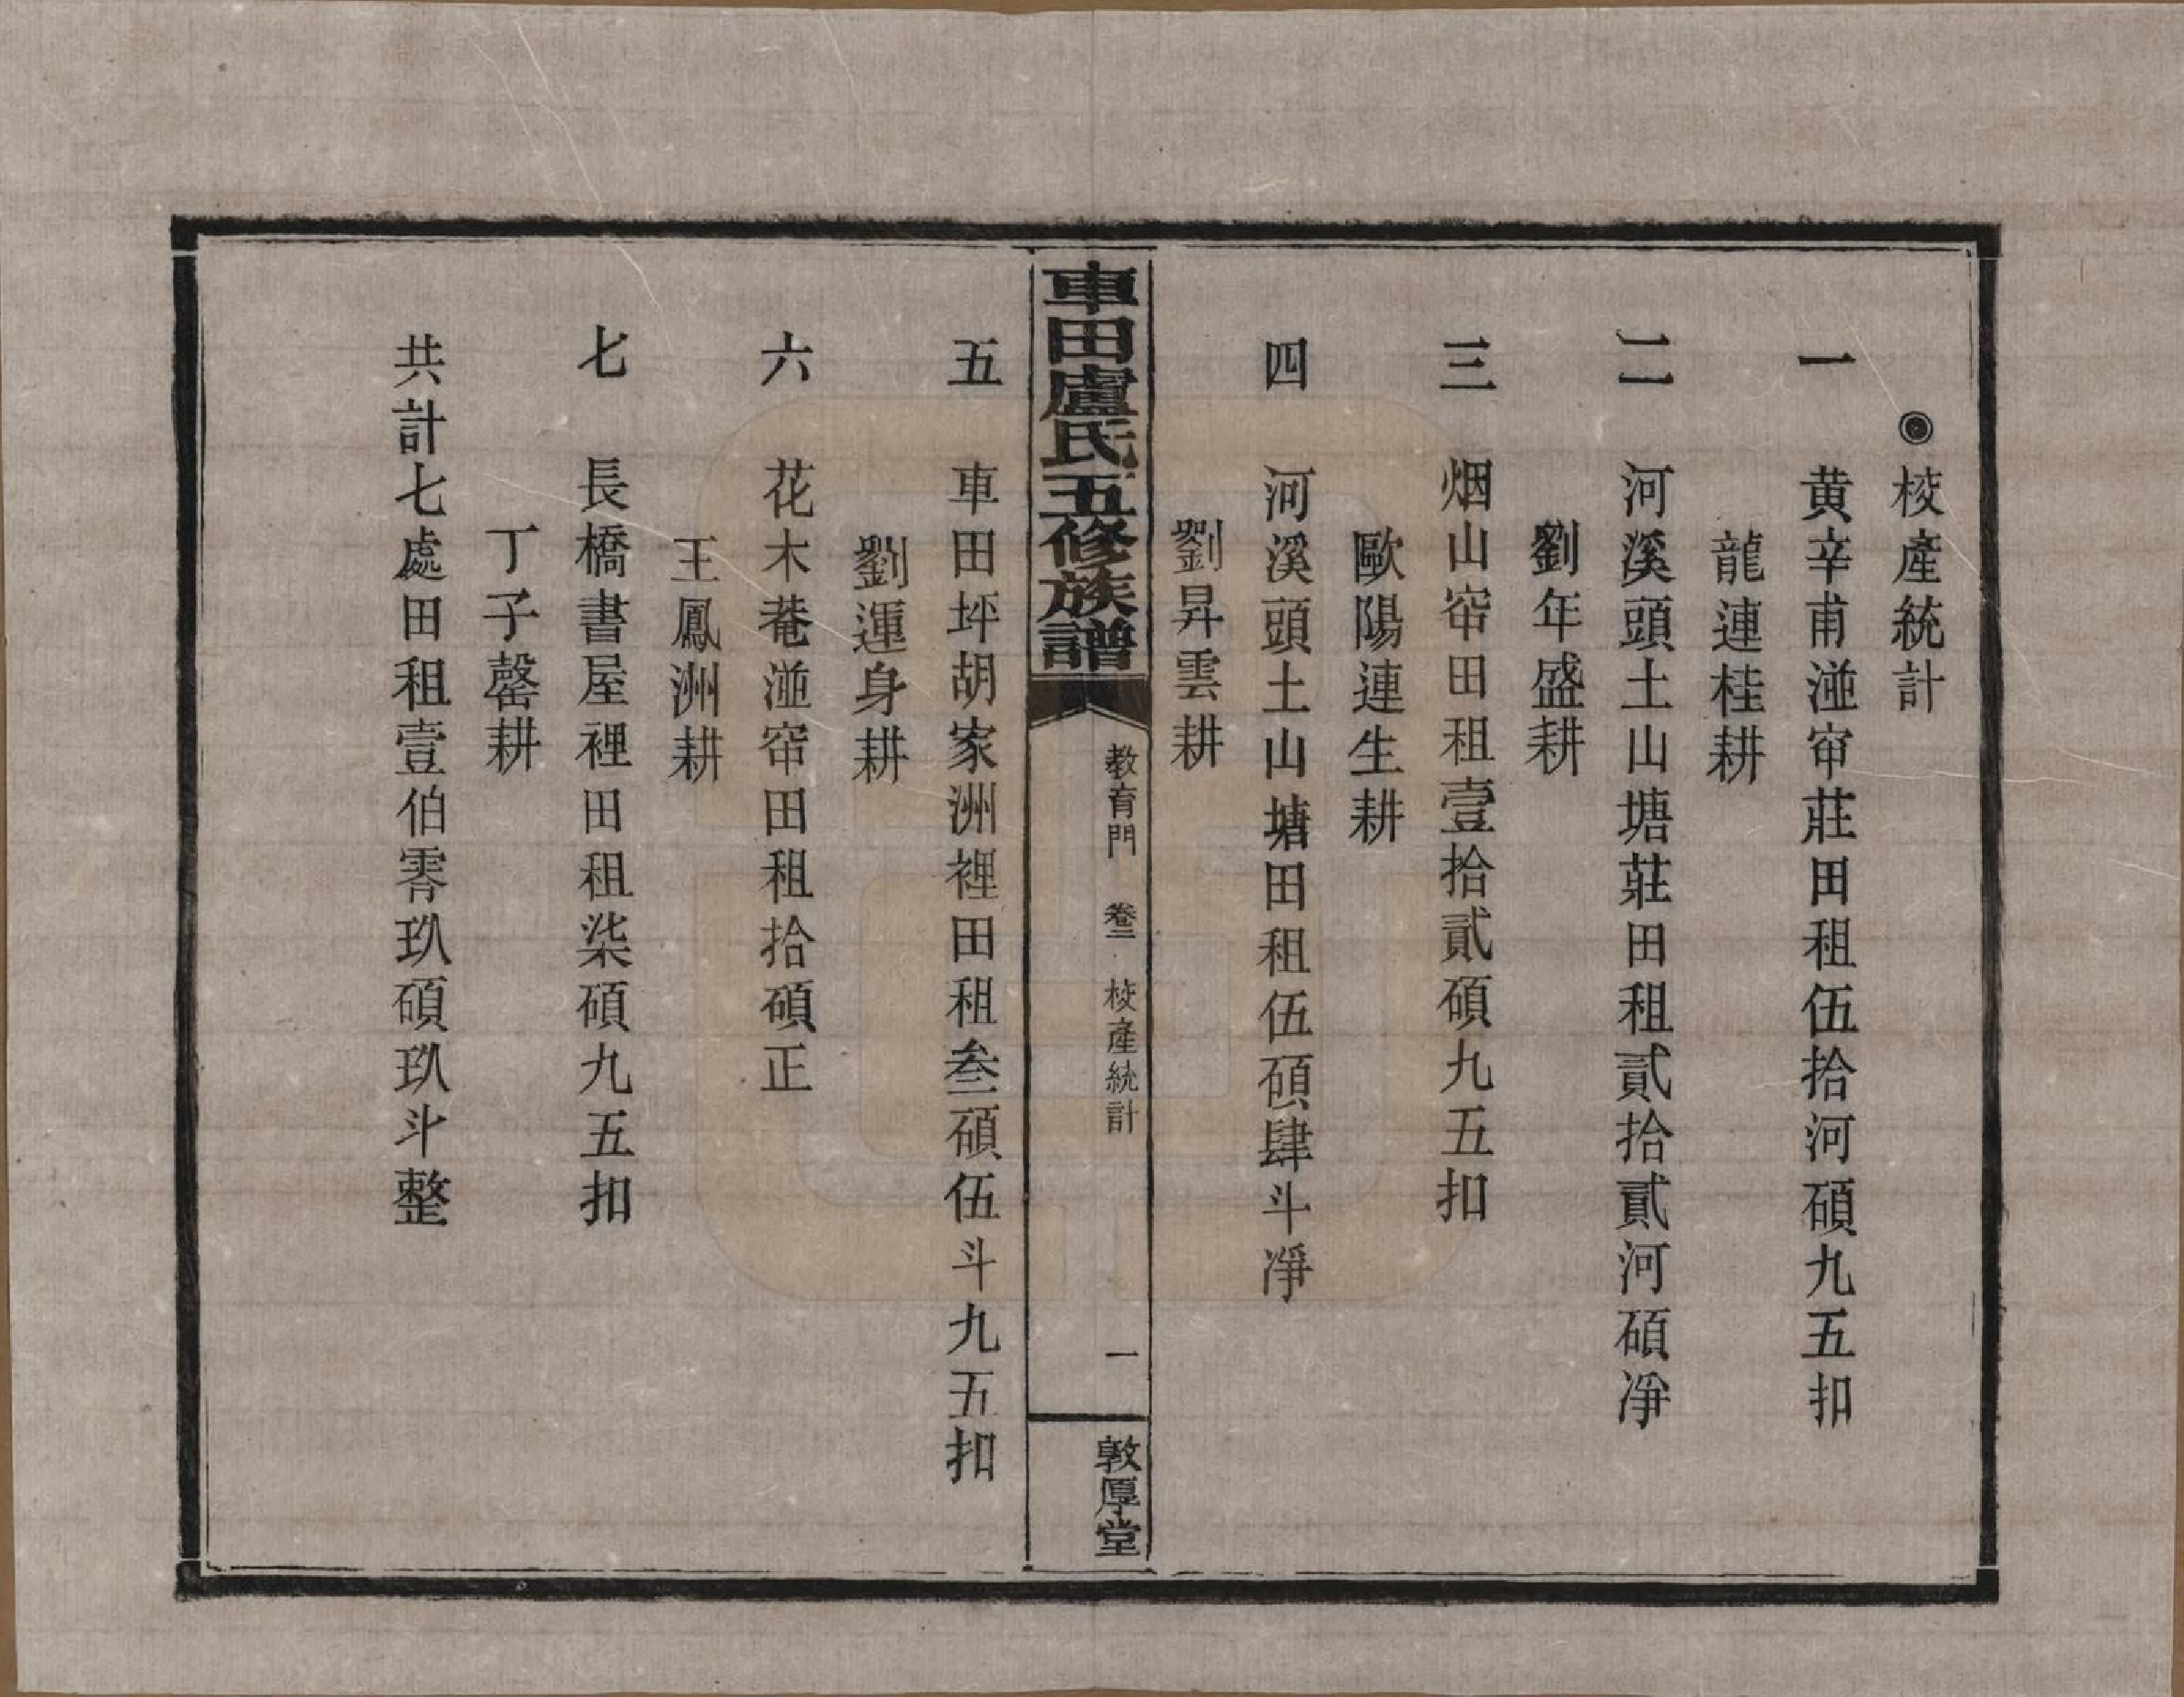 ◉校產統計
一 黄辛甫湴窂莊田租伍拾河碩九五扣
龍連桂耕
二 河溪頭土山塘莊田租貳拾貳河碩凈
劉年盛耕
三 烟山窂田租壹拾貳碩九五扣
歐陽連生耕
四 河溪頭土山塘田租伍碩肆斗凈
劉昇雲耕
車田盧氏五修族譜
教育門 卷三 校產統計
一
敦厚堂
五 車田坪胡家洲裡田租叁碩伍斗九五扣
劉運身耕
六 花木菴湴窂田租拾碩正
王鳳洲耕
七 長橋書屋裡田租柒碩九五扣
丁子罄耕
共計七處田租壹伯零玖碩玖斗整